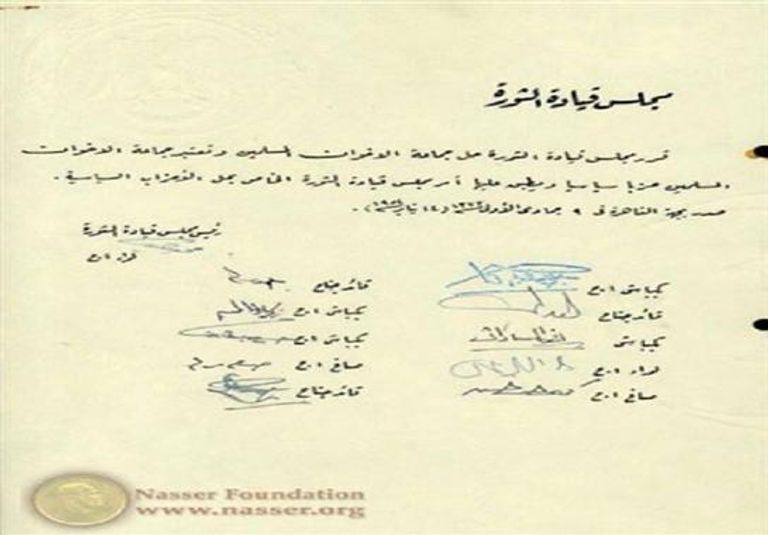 مجلس قيادة الثورة
قرر مجلس قيادة الثورة حل جماعة الاخوان المسلمين وتعتبر جماعة الاخوان
المسلمين حزبا سياسيا ويطبق عليها أمر مجلس قيادة الثورة الخاص بحل الأحزاب السياسية .
صدر بجهة القاهرة فى ٩ جمادى الأولى (١٤ يناير ١٩٥٤) .
رئيس مجلس قيادة الثورة
لواء ا.ح
بكباشى ا.ح
قائد جناح
قائد جناح
بكباشى ا.ح
بكباشى
بكباشى ا.ح
لواء ا.ح
صاغ ا.ح
صاغ ا.ح
قائد جناح
Nasser Foundation
www.nasser.org